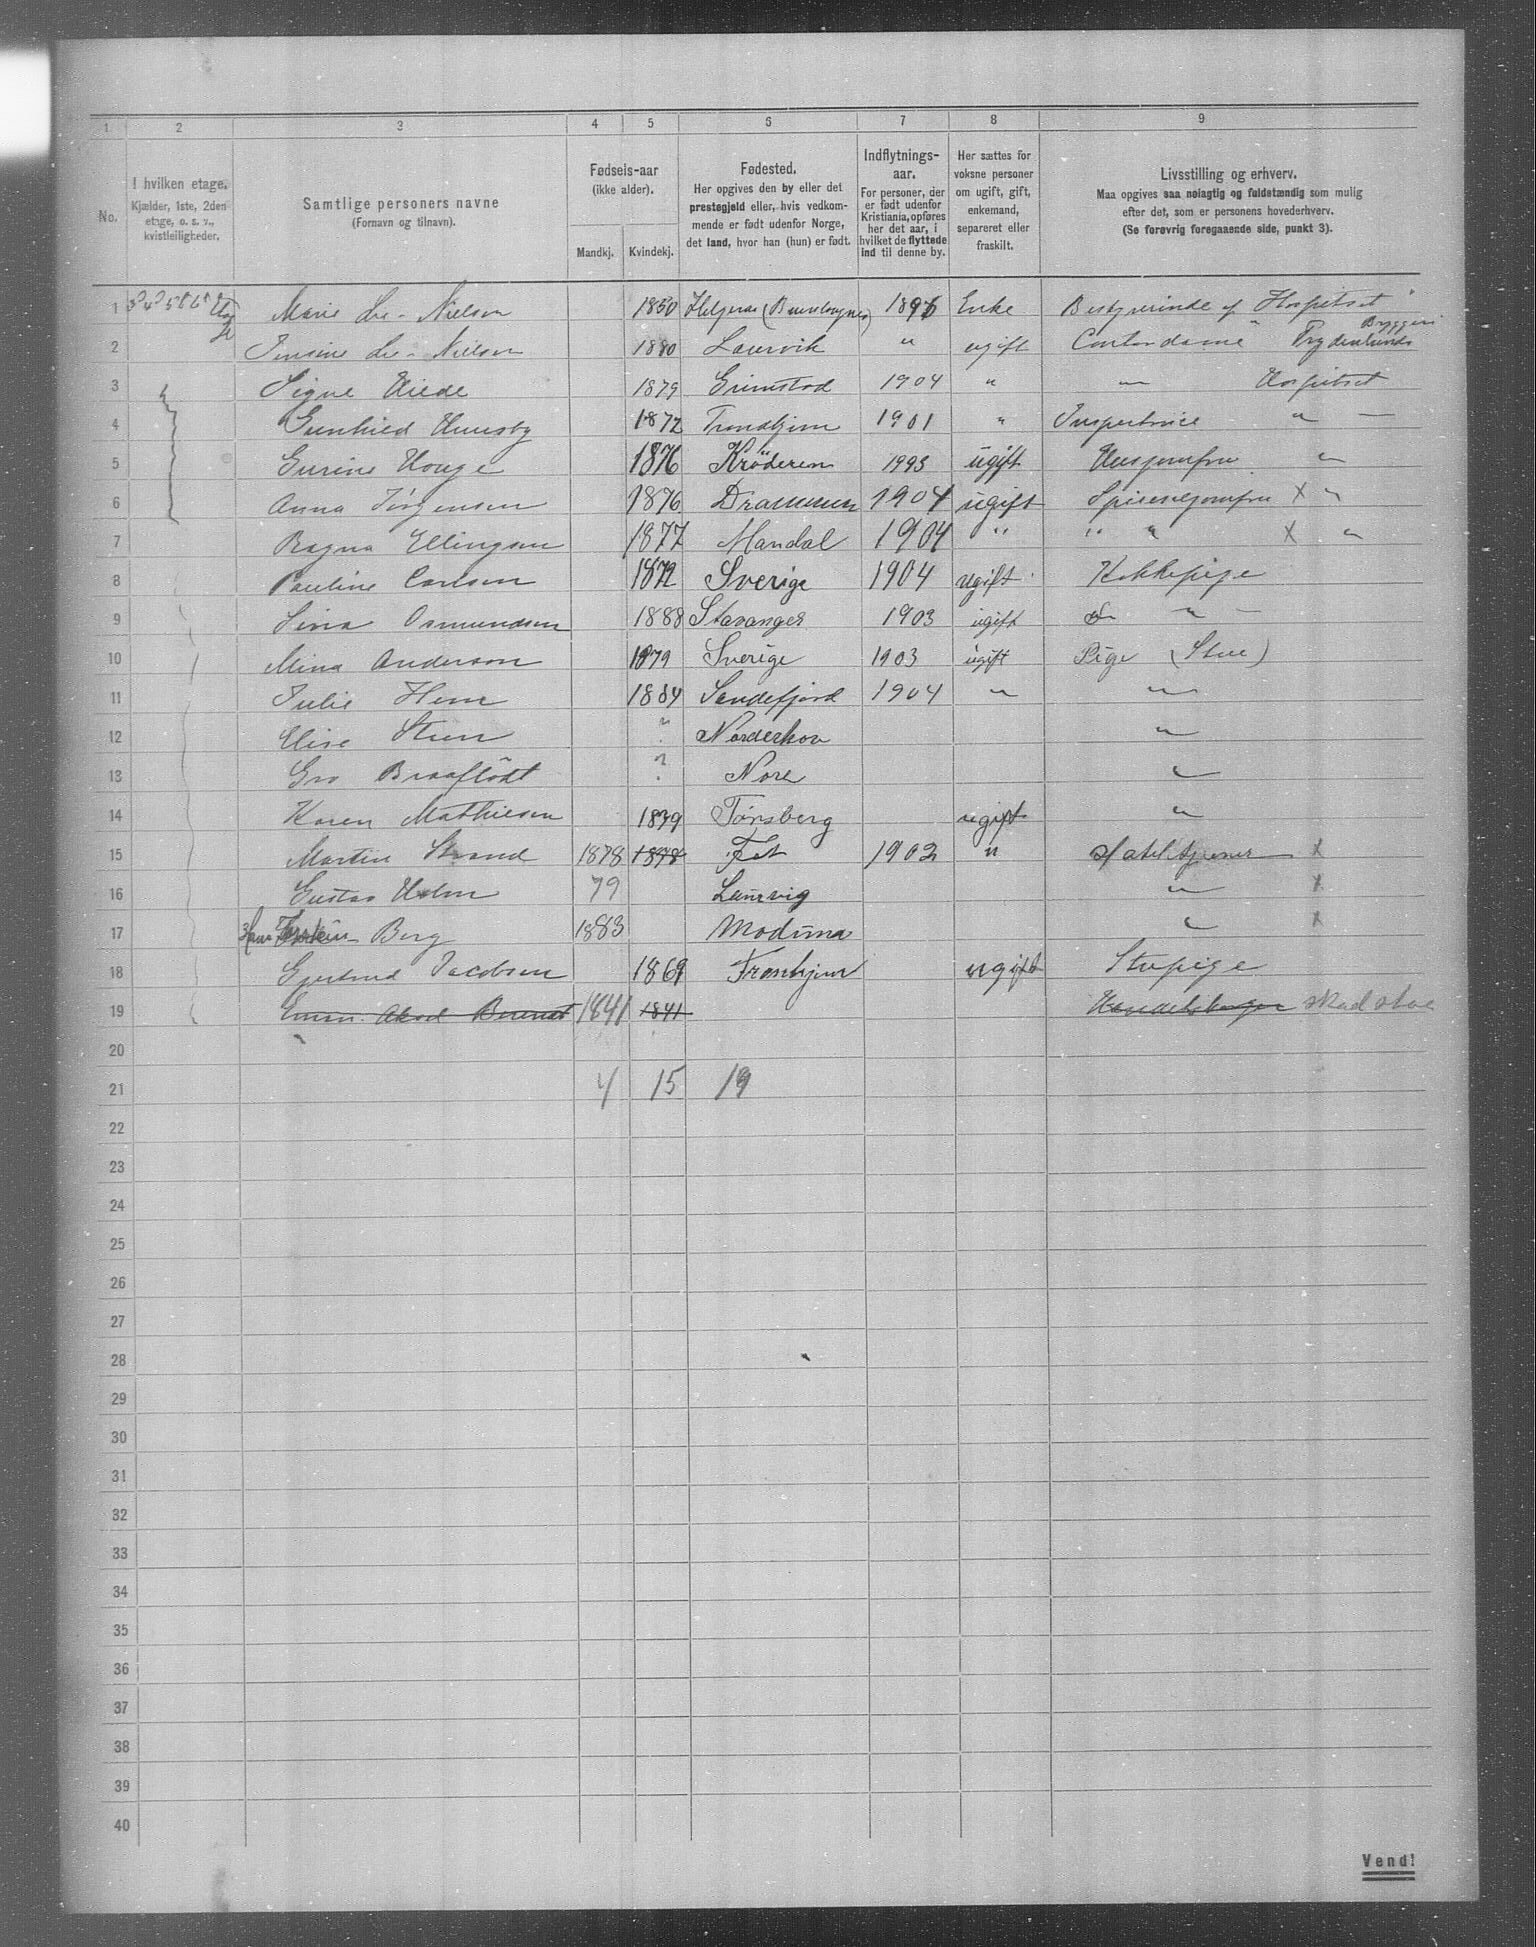 1 2 3 4 5 6 7 8 9
No.
I hvilken etage.
Kjælder, 1ste, 2den
etage, o. s. v.,
kvistleiligheder.
Samtlige personers navne
(Fornavn og tilnavn).
Fødsels-aar
(ikke alder).
Mandkj. Kvindekj.
Fødested.
Her opgives den by eller det
prestegjeld eller, hvis vedkom-
mende er født udenfor Norge,
det land, hvor han (hun) er født.
Indflytnings-
aar.
For personer, der
er født udenfor
Kristiania, opføres
her det aar, i
hvilket de flyttede
ind til denne by.
Her sættes for
voksne personer
om ugift, gift,
enkemand,
separeret eller
fraskilt.
Livsstilling og erhverv.
Maa opgives saa nøiagtig og fuldstændig som mulig
efter det, som er personens hovederhverv.
(Se forøvrig foregaaende side, punkt 3).
1 Marie Lie-Nielsen 1850 1896 Enke Bestyrerinde af Hospitset
2 Jensine Lie-Nielsen 1880 Laurvik " ugift Contordame Frydenlunds Bryggeri
3 Signe 1879 Grimstad 1904 " " Hospitset
4 Gunhild 1872 Trondhjem 1901 " Inspectrice "
5 Gurine Houge 1876 Krøderen ugift Husjomfru "
6 Anna Jørgensen 1876 Drammen 1904 ugift Spisesaljomfru X "
7 Ragna Ellingsen 1877 Mandal 1904 " " " X "
8 Pauline Carlsen 1872 Sverige 1904 ugift Kokkepige
9 Lina Osmundsen 1888 Stavanger 1903 ugift "
10 Mina Anderson 1879 Sverige 1903 ugift Pige (Stue)
11 Julie 1884 Sandefjord 1904 " "
12 Elise ? Norderhov "
13 Gro Braaflödt ? Nore "
14 Karen Mathiesen 1879 Tønsberg ugift "
15 Martin Strand 1878 1878 Fet 1902 " Hoteltjener X
16 Gustav Holm 79 Laurvig " X
17 Hans Berg 1883 Modum " X
18 Gjertrud Jacobsen 1869 Tronhjem ugift Stupige
19 1841 1841 skad stoe
20
21 4 15 19
22
23
24
25
26
27
28
29
30
31
32
33
34
35
36
37
38
39
40
Vend!